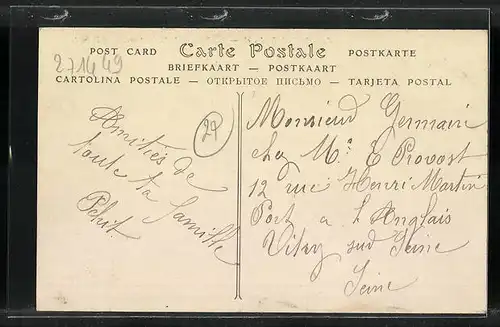 POST CARD Carte Postale POSTKARTE
BRIEFKAART — POSTKAART
CARTOLINA POSTALE — ОТКРЫТОЕ ПИСЬМО — TARJETA POSTAL
271449
29
Amitiés de
toute ta famille
Petit
Monsieur Germain
chez Mr E Provost
12 rue Henri Martin
Port a l Anglais
Vitry sur Seine
Seine